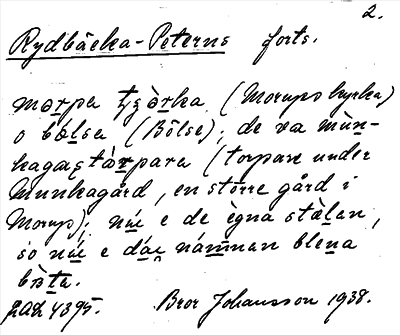 2.
Rydbäcka-Peterns forts.
mɷrpa tʂɷ̀rka (Morups kyrka)
o bɷ́lsa (Bölse); de va mùn-
kagaʂtàrpara (torpare under
Munkagård, en större gård i
Morup); nú e de ègna stæ̀lan,
so nú e dáe námnan blena
bɷ̀ta.
LAL 4395. Bror Johansson 1938.